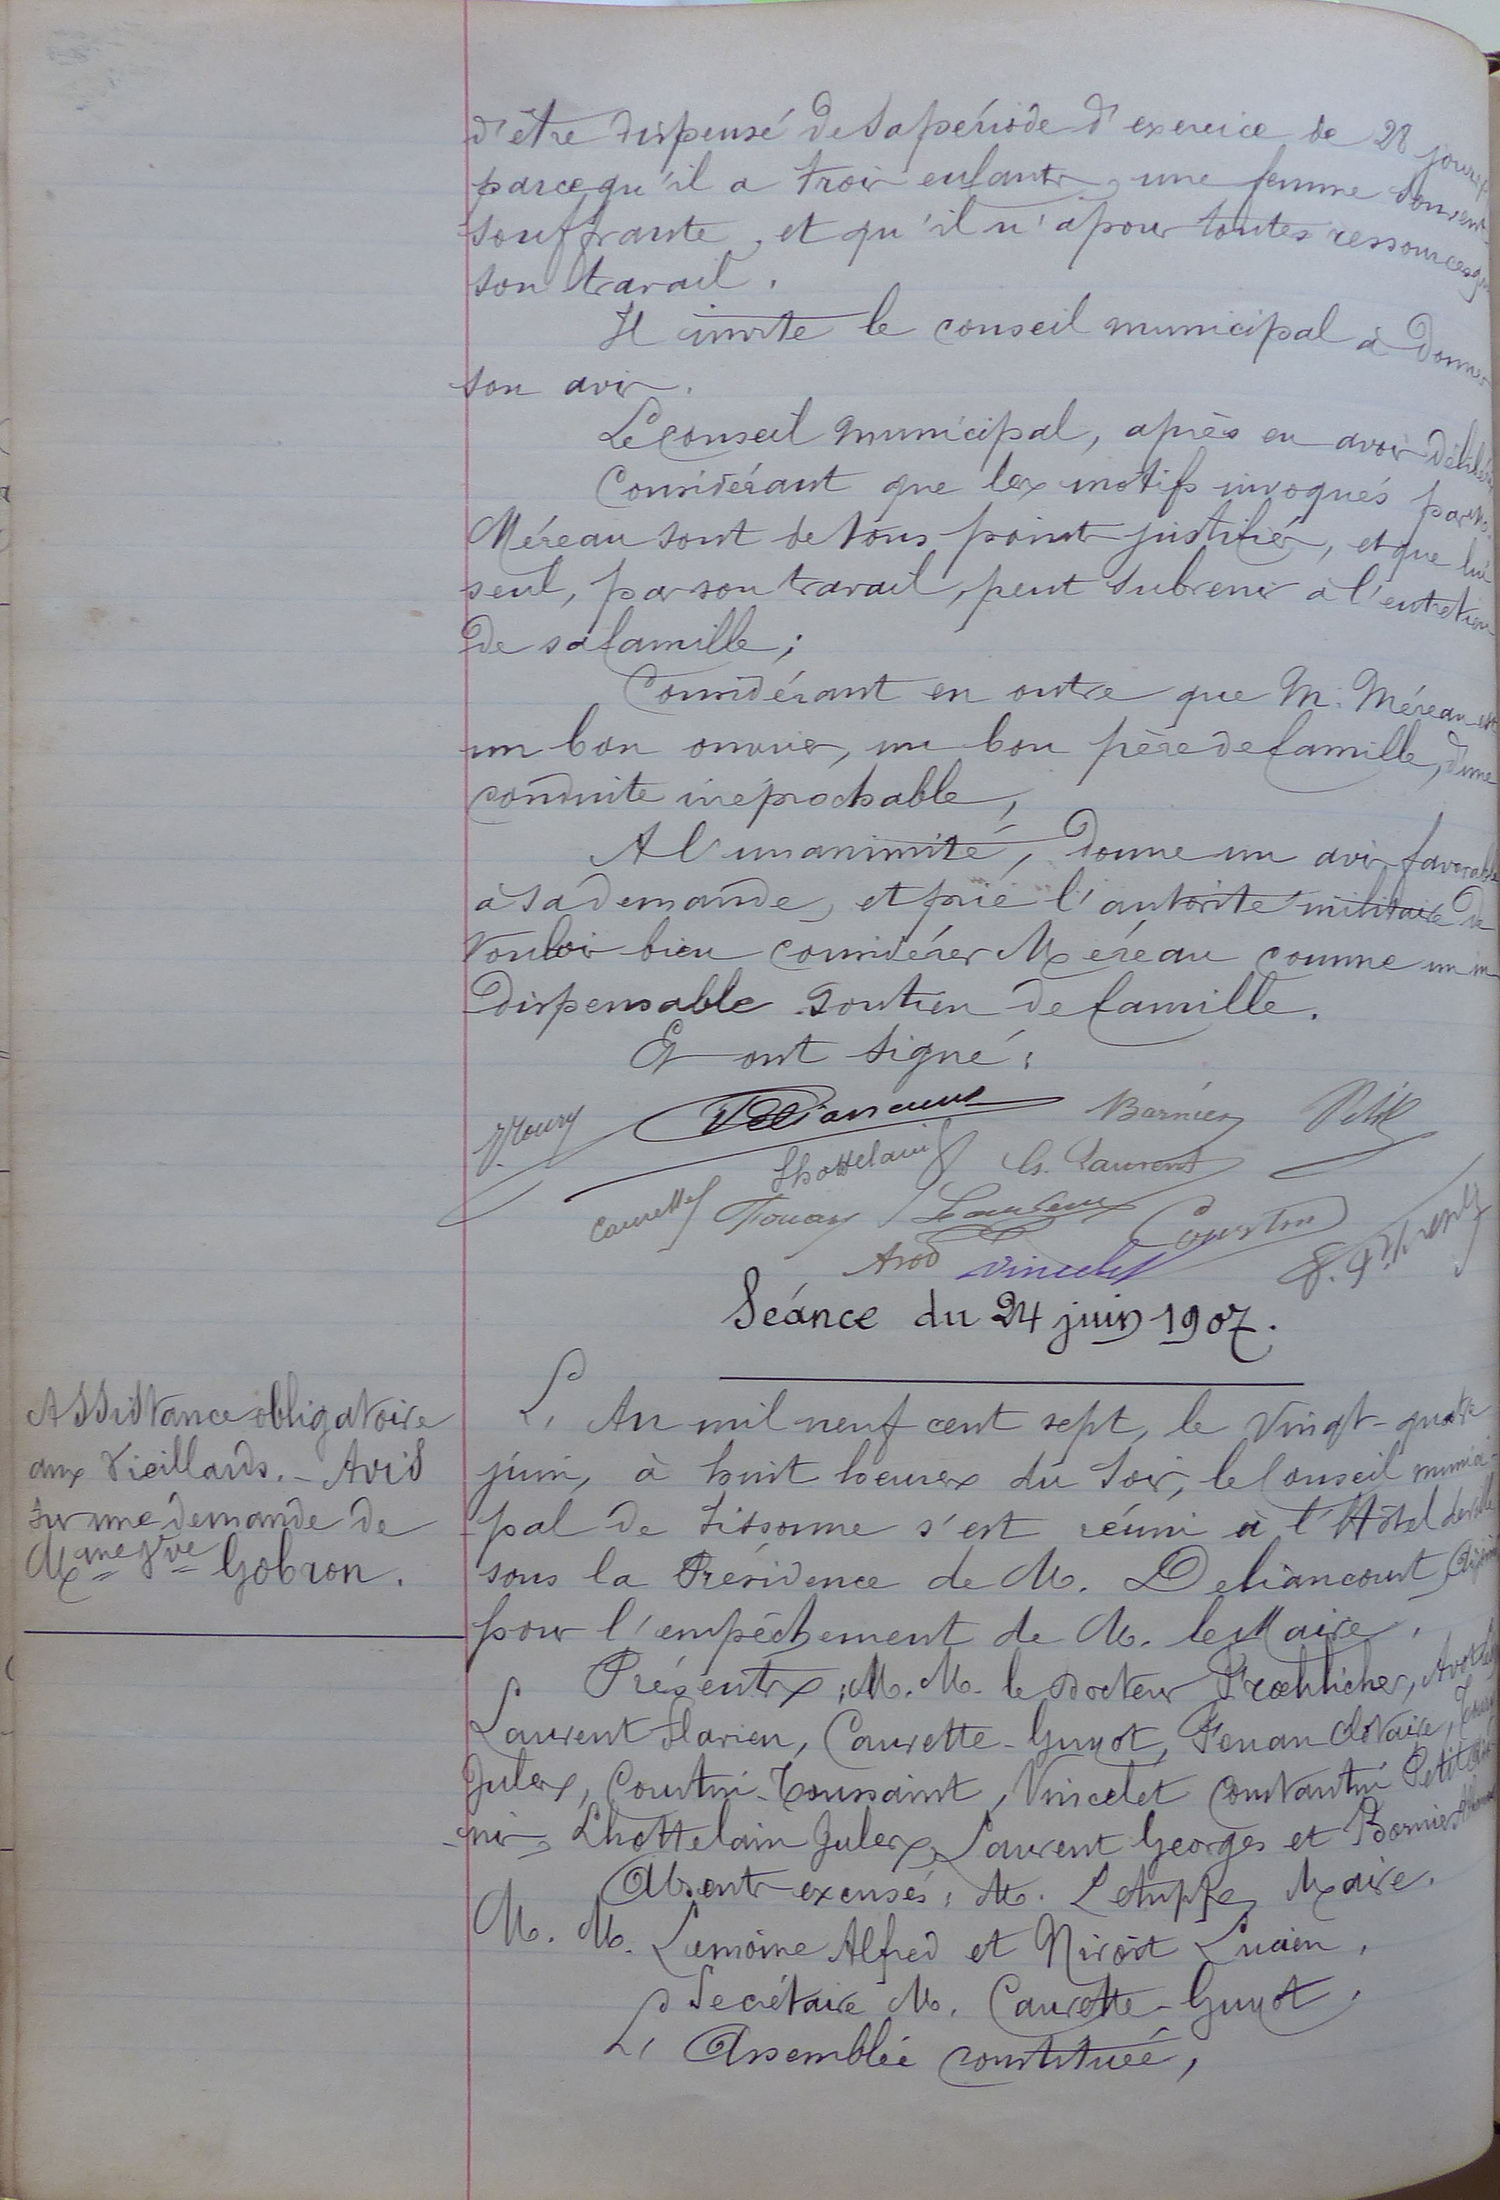 d'être dispensé de sa période d'exercice de 28 jours
parce qu'il a trois enfants, une femme souvent
souffrante, et qu'il n'a pour toutes ressources que
son travail.
Il invite le conseil municipal à donner
son avis.
Le conseil municipal, après en avoir délibéré
Considérant que les motifs invoqués par M.
Méreau sont de tous points justifiés, et que lui
seul, par son travail, peut subvenir à l'entretien
de sa famille;
Considérant en outre que M. Méreau est
un bon ouvrier, un bon père de famille, d'une
conduite irréprochable,
A l'unanimité, donne un avis favorable
à sa demande, et prie l'autorité militaire de
vouloir bien considérer Méreau comme un in
dispensable soutien de famille.
Et ont signé:
Deliancourt Barnier Petit
Lhottelain G. Laurent
Caurette Fouan Laurent Courtin
Arod Vincelet
Séance du 24 juin 1907.
Assistance obligatoire
aux Vieillards. - Avis
sur une demande de
Mme Vve Gobron.
L'An mil neuf cent sept, le vingt-quatre
juin, à huit heures du soir, le Conseil munici-
pal de Sissonne s'est réuni à l'Hôtel de ville
sous la Présidence de M. Deliancourt, Adjoint
pour l'empêchement de M. le Maire.
Présents: M. M. le Docteur Froehlicher, Arod
Laurent Flarien, Caurette-Guyot, Fouan Clotaire,
Jules, Courtin-Toussaint, Vincelet Constantin Petit
nis, Lhottelain Jules, Laurent Georges et Barnier
Absents excusés: M. Letuppe, Maire.
M. M. Lemoine Alfred et Miroit Lucien.
Secrétaire M. Caurette-Guyot.
L'Assemblée constituée,